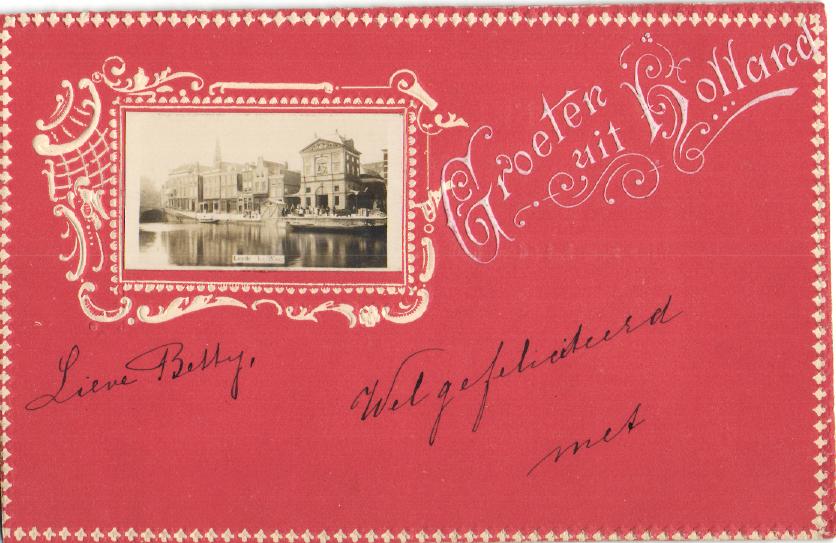 Groeten
uit Holland
Lieve Betty,
Wel gefeliciteerd
met